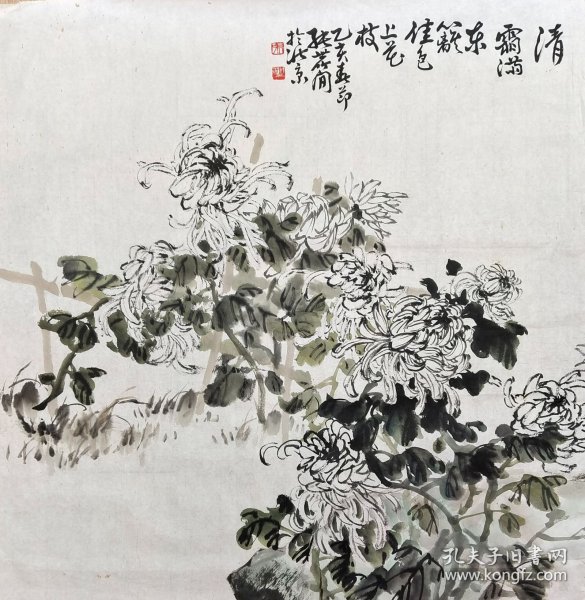 清
霜满
东
篱
佳色
上花
枝
乙亥春节
张世简
於北京
孔夫子旧书网
www.kongfz.com